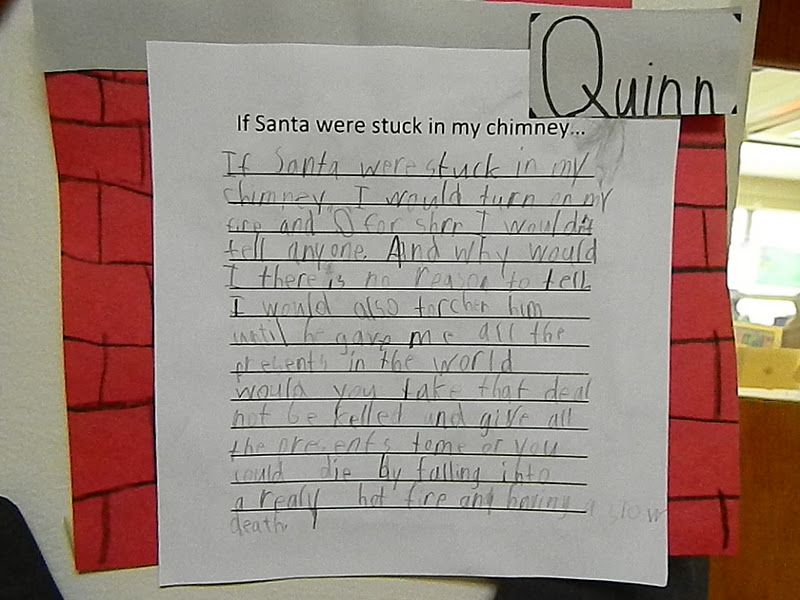 Quinn
If Santa were stuck in my chimney...
If Santa were stuck in my
chimney I would turn on my
fire and O for shrr I wouldnt
tell anyone. And why would
I there is no reason to tell
I would also torcher him
until he gave me all the
presents in the world
would you take that deal
not be kelled and give all
the presents tome or you
could die by falling into
a realy hot fire and having a slow
death.